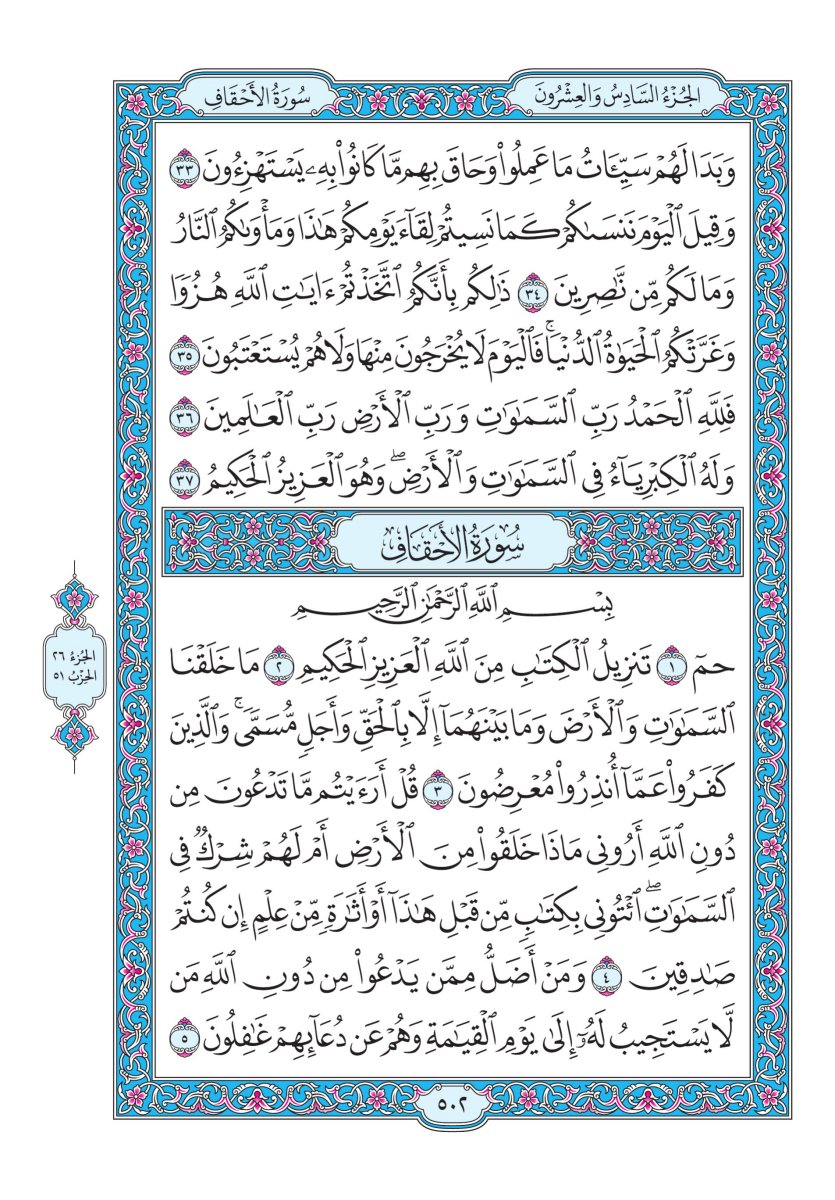 الجُزْءُ السَّادِسُ وَالعِشْرُونَ
سُورَةُ الأَحْقَافِ
وَبَدَا لَهُمْ سَيِّـَٔاتُ مَا عَمِلُوا۟ وَحَاقَ بِهِم مَّا كَانُوا۟ بِهِۦ يَسْتَهْزِءُونَ ٣٣
وَقِيلَ ٱلْيَوْمَ نَنسَىٰكُمْ كَمَا نَسِيتُمْ لِقَآءَ يَوْمِكُمْ هَـٰذَا وَمَأْوَىٰكُمُ ٱلنَّارُ
وَمَا لَكُم مِّن نَّـٰصِرِينَ ٣٤ ذَٰلِكُم بِأَنَّكُمُ ٱتَّخَذْتُمْ ءَايَـٰتِ ٱللَّهِ هُزُوًا
وَغَرَّتْكُمُ ٱلْحَيَوٰةُ ٱلدُّنْيَا ۚ فَٱلْيَوْمَ لَا يُخْرَجُونَ مِنْهَا وَلَا هُمْ يُسْتَعْتَبُونَ ٣٥
فَلِلَّهِ ٱلْحَمْدُ رَبِّ ٱلسَّمَـٰوَٰتِ وَرَبِّ ٱلْأَرْضِ رَبِّ ٱلْعَـٰلَمِينَ ٣٦
وَلَهُ ٱلْكِبْرِيَآءُ فِى ٱلسَّمَـٰوَٰتِ وَٱلْأَرْضِ ۖ وَهُوَ ٱلْعَزِيزُ ٱلْحَكِيمُ ٣٧
سُورَةُ الأَحْقَافِ
بِسْمِ ٱللَّهِ ٱلرَّحْمَـٰنِ ٱلرَّحِيمِ
حمٓ ١ تَنزِيلُ ٱلْكِتَـٰبِ مِنَ ٱللَّهِ ٱلْعَزِيزِ ٱلْحَكِيمِ ٢ مَا خَلَقْنَا
ٱلسَّمَـٰوَٰتِ وَٱلْأَرْضَ وَمَا بَيْنَهُمَآ إِلَّا بِٱلْحَقِّ وَأَجَلٍ مُّسَمًّى ۚ وَٱلَّذِينَ
كَفَرُوا۟ عَمَّآ أُنذِرُوا۟ مُعْرِضُونَ ٣ قُلْ أَرَءَيْتُم مَّا تَدْعُونَ مِن
دُونِ ٱللَّهِ أَرُونِى مَاذَا خَلَقُوا۟ مِنَ ٱلْأَرْضِ أَمْ لَهُمْ شِرْكٌ فِى
ٱلسَّمَـٰوَٰتِ ۖ ٱئْتُونِى بِكِتَـٰبٍ مِّن قَبْلِ هَـٰذَآ أَوْ أَثَـٰرَةٍ مِّنْ عِلْمٍ إِن كُنتُمْ
صَـٰدِقِينَ ٤ وَمَنْ أَضَلُّ مِمَّن يَدْعُوا۟ مِن دُونِ ٱللَّهِ مَن
لَّا يَسْتَجِيبُ لَهُۥٓ إِلَىٰ يَوْمِ ٱلْقِيَـٰمَةِ وَهُمْ عَن دُعَآئِهِمْ غَـٰفِلُونَ ٥
الجُزءُ ٢٦
الحِزْبُ ٥١
٥٠٢